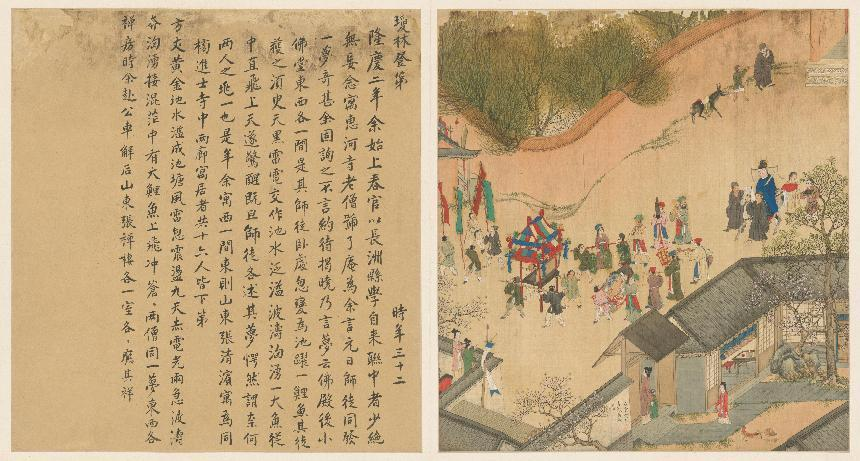 瓊林登第 時年三十二
隆慶二年余始上春官以長洲縣學自来聯中者少絶
無妄念寓惠河寺老僧號了庵為余言元日師徒同發
一夢奇甚余固詢之不言約待揭曉乃言夢云佛殿後小
佛堂東西各一間是其師徒卧處忽變為池躍一鯉魚其徒
獲之須臾天黒雷電交作池水泛溢波濤洶湧一大魚從
中直飛上天遂驚醒既旦師徒各述其夢愕然謂奈何
两人之兆一也是年余寓西一間東則山東張清濱寓焉同
榜進士寺中两廊寓居者共十六人皆下第
方丈黄金池水溢成池塘風雷忽震盪九天赤電光雨急波濤
奔洶湧接混茫中有大鯉魚上飛冲蒼〻两僧同一夢東西各
禅房時余赴公車解后山東張禅棲各一室各〻應其祥